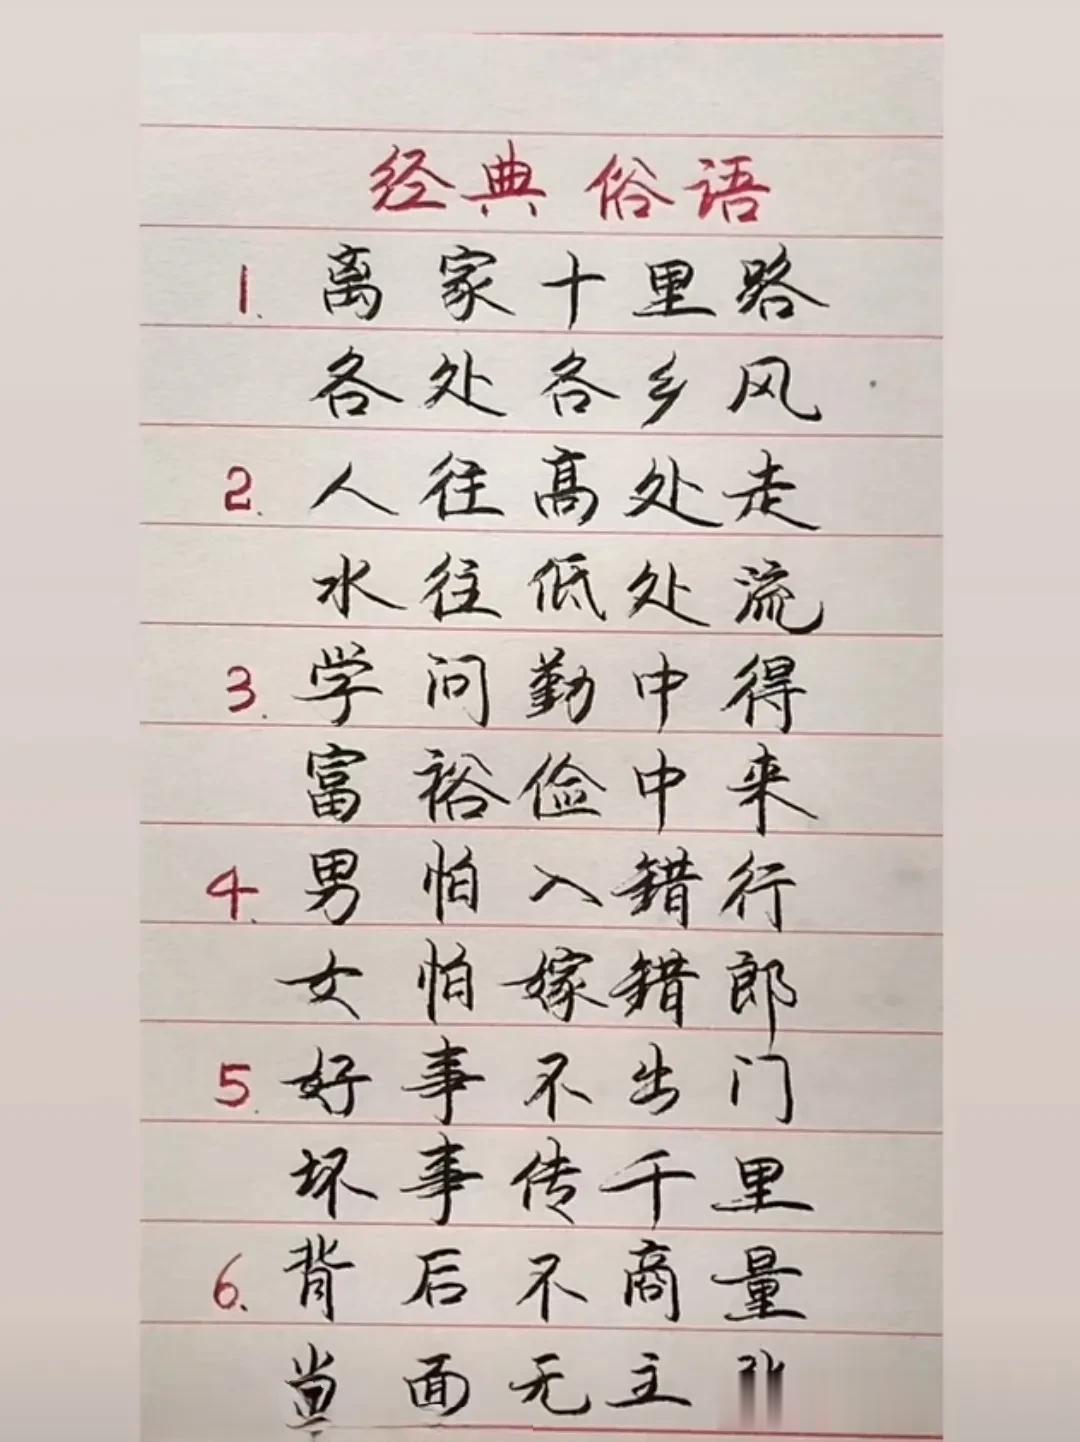 经典俗语
1. 离家十里路
各处各乡风
2. 人往高处走
水往低处流
3. 学问勤中得
富裕俭中来
4. 男怕入错行
女怕嫁错郎
5. 好事不出门
坏事传千里
6. 背后不商量
当面无主